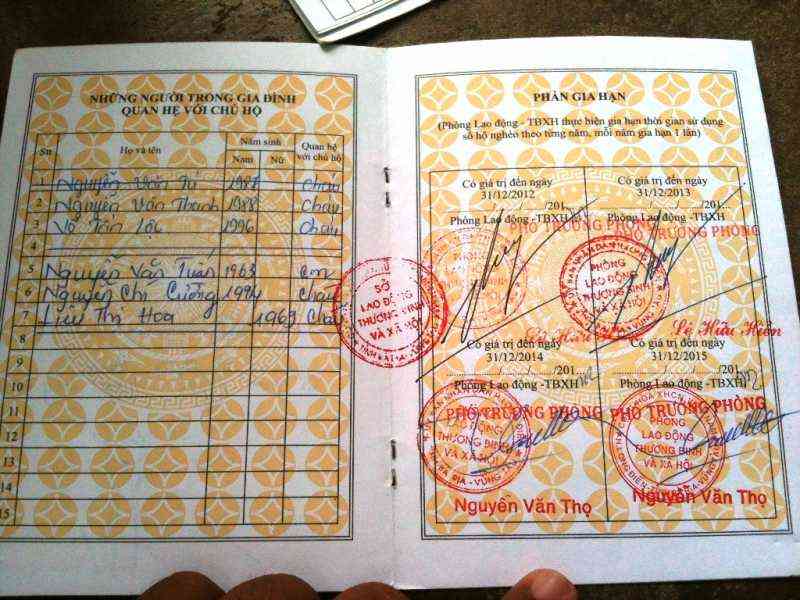 NHỮNG NGƯỜI TRONG GIA ĐÌNH
QUAN HỆ VỚI CHỦ HỘ
Stt Họ và tên Năm sinh Quan hệ với chủ hộ
Nam Nữ
1 Nguyễn Văn Tú 1987 cháu
2 Nguyễn Văn Thanh 1988 cháu
3 Võ Tấn Lộc 1996 cháu
4
5 Nguyễn Văn Tuấn 1963 em
6 Nguyễn Chí Cường 1994 cháu
7 Liêu Thị Hoa 1963 cháu
8
9
10
11
12
13
14
15
SỞ
LAO ĐỘNG
THƯƠNG BINH
VÀ XÃ HỘI
PHẦN GIA HẠN
(Phòng Lao động - TBXH thực hiện gia hạn thời gian sử dụng
sổ hộ nghèo theo từng năm, mỗi năm gia hạn 1 lần)
Có giá trị đến ngày
31/12/2012
....../....../201...
Phòng Lao động -TBXH
PHÓ TRƯỞNG PHÒNG
Có giá trị đến ngày
31/12/2013
....../....../201...
Phòng Lao động -TBXH
PHÓ TRƯỞNG PHÒNG
PHÒNG
LAO ĐỘNG
THƯƠNG BINH
VÀ XÃ HỘI
Lê Hữu Hiền
Có giá trị đến ngày
31/12/2014
....../....../201...
Phòng Lao động -TBXH
PHÓ TRƯỞNG PHÒNG
LAO ĐỘNG
THƯƠNG BINH
VÀ XÃ HỘI
Nguyễn Văn Thọ
Có giá trị đến ngày
31/12/2015
....../....../201...
Phòng Lao động -TBXH
PHÓ TRƯỞNG PHÒNG
PHÒNG
LAO ĐỘNG
THƯƠNG BINH
VÀ XÃ HỘI
Nguyễn Văn Thọ